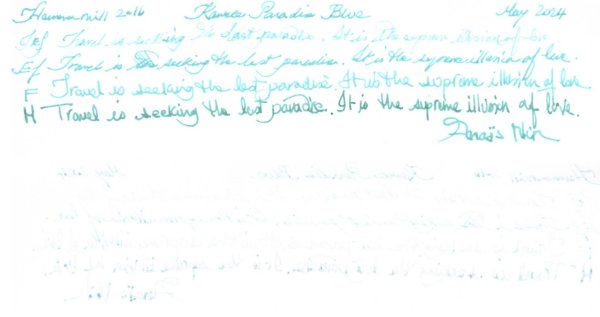 Flammarnill 2016 Kaweco Paradise Blue May 2024
EEf Travel is seeking the lost paradise. It is the supreme illusion of love.
Ef Travel is seeking the lost paradise. It is the supreme illusion of love.
F Travel is seeking the lost paradise. It is the supreme illusion of love
M Travel is seeking the lost paradise. It is the supreme illusion of love.
Anaïs Nin